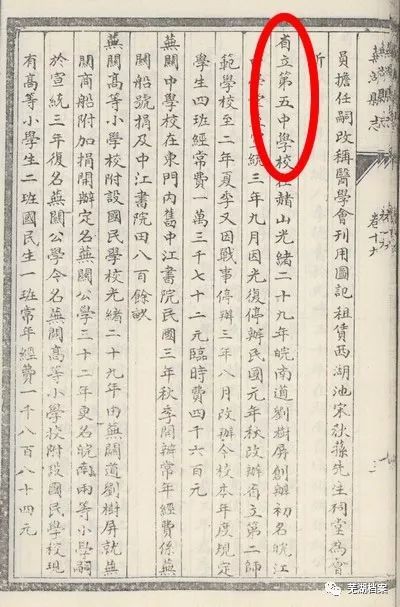 蕪湖縣志
卷十九
員擔任嗣改稱醫學會刋用圖記租賃西湖池宋狄蓀先生祠堂爲會
所
省立第五中學校在赭山光緒二十九年皖南道劉樹屏創辦初名皖江
學堂統三年九月因光復停辦民國元年秋改辦省立第二師
範學校至二年夏季又因戰事停辦三年八月改辦今校本年度規定
學生四班經常費一萬三千七十二元臨時費四千六百元
蕪關中學校在東門內舊中江書院民國三年秋季開辦常年經費係蕪
關船號捐及中江書院田八百餘畝
蕪關高等小學校附設國民學校光緒二十九年由蕪關道劉樹屏就蕪
關商船附加捐開辦定名蕪關公學三十二年更名皖南兩等小學嗣
於宣統三年復名蕪關公學今名蕪關高等小學校附設國民學校現
有高等小學生二班國民生一班常年經費一千八百八十四元
芜湖档案